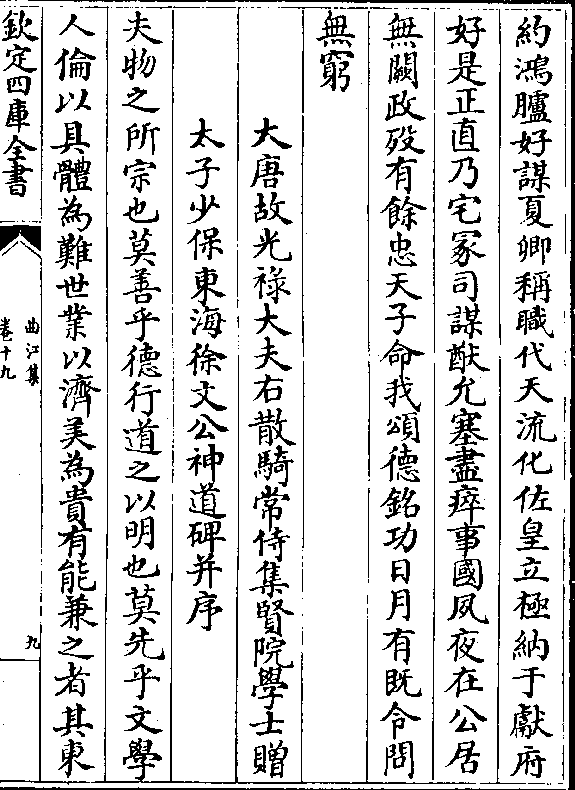 約鴻臚好謀夏卿稱職代天流化佐皇立極納于獻府
好是正直乃宅冢司謀猷允塞盡瘁事國夙夜在公居
無闕政歿有餘忠天子命我頌德銘功日月有既令問
無窮
大唐故光祿大夫右散騎常侍集賢院學士贈
太子少保東海徐文公神道碑并序
夫物之所宗也莫善乎德行道之以明也莫先乎文學
人倫以具體為難世業以濟美為貴有能兼之者其東
欽定四庫全書
曲江集
卷十九
九